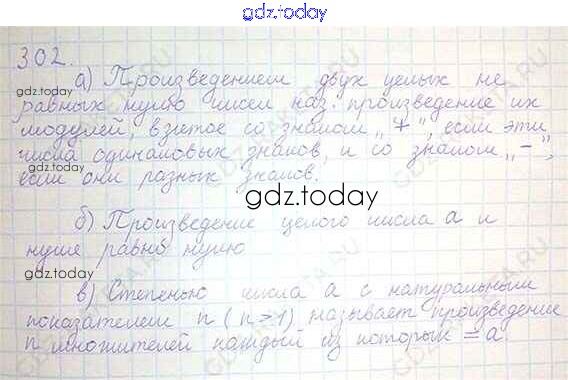 gdz.today
302.
а) Произведением двух целых не
gdz.today
равных нулю чисел наз. произведение их
модулей, взятое со знаком „+", если эти
числа одинаковых знаков, и со знаком „-",
если они разных знаков.
gdz.today
б) Произведение целого числа а и
нуля равно нулю
gdz.today
в) Степенью числа а с натуральным
показателем n (n>1) называет произведение
n множителей каждый из которых = а.